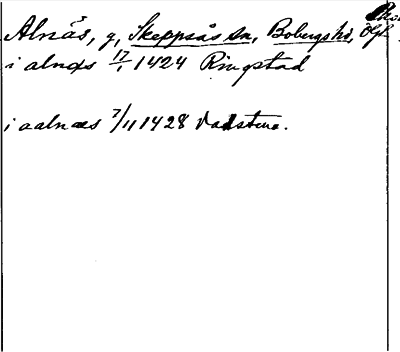 Alnäs, g, Skeppsås sn, Bobergs hd, Ögl.
i alnæs 17/1 1424 Ringstad
i aalnæs 7/11 1428 Vadstena.